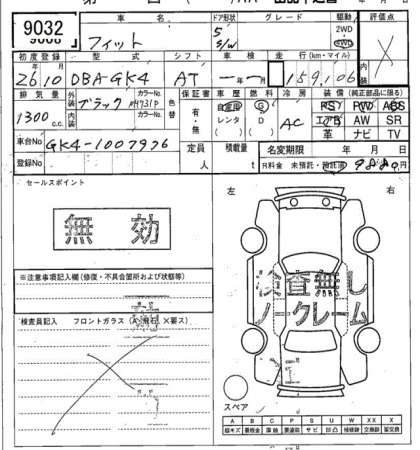 9032
車名
フィット
ドア形状
5
S/W
グレード
駆動
2WD
4WD
評価点
X
初度登録
型式
シフト
車検
走行(km・マイル)
26年10月
DBA-GK4
AT
一年 月
159,106
排気量
1300 c.c.
外装
ブラック
カラーNo.
内装
カラーNo.
色替
保証書
有・無
車歴
自家用
レンタ
燃料
G
D
冷房
AC
装備(純正部品に限る)
PS PW ABS
エアB AW SR
革 ナビ TV
車台No
GK4-1007926
登録No
定員
人
積載量
t
名変期限
年 月 日
R料金 未預託・預託済
9880円
セールスポイント
無効
左
右
※注意事項記入欄(修復・不具合箇所および状態等)
検査員記入 フロントガラス(A、飛石、X要ス)
検査無し
ノークレーム
スペア
A B C P S U W X XX